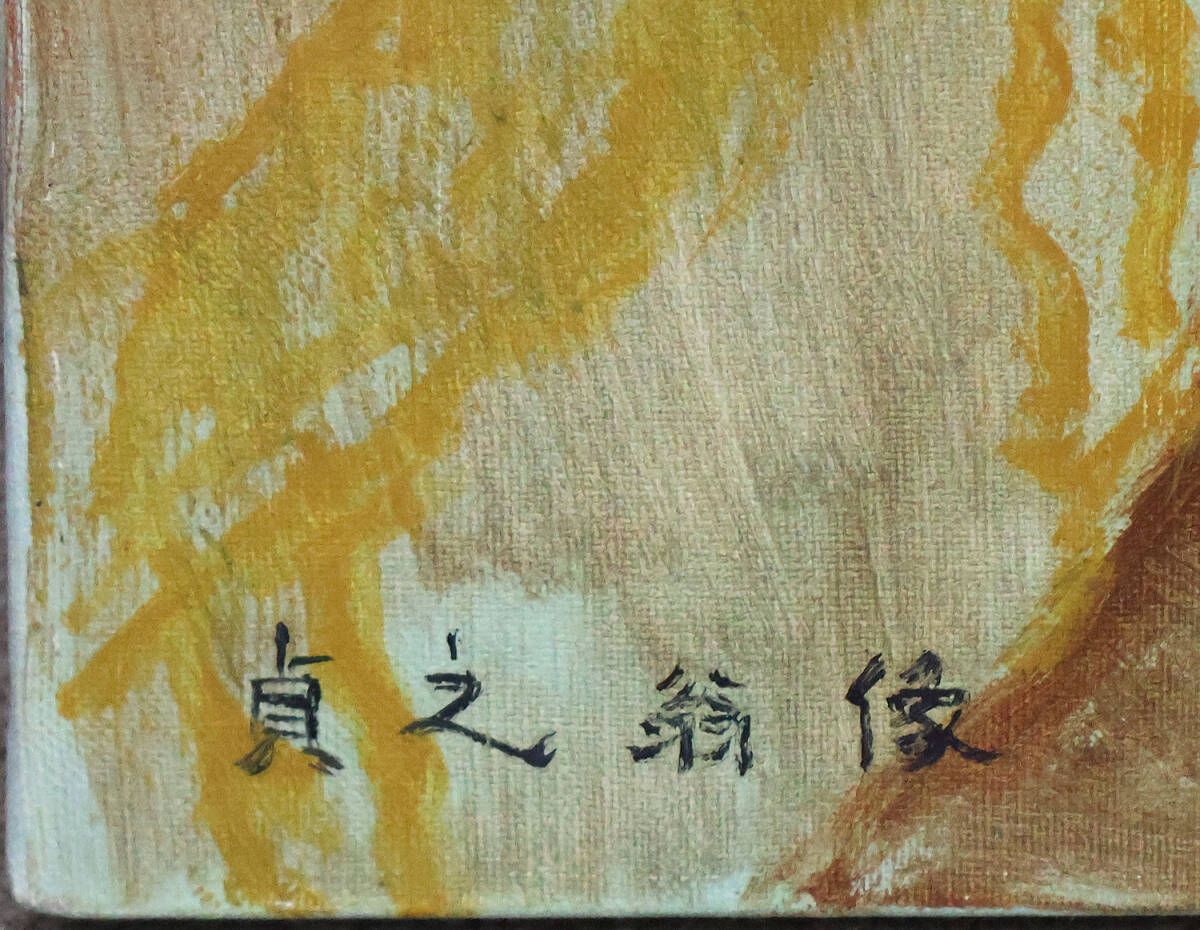 貞之翁像